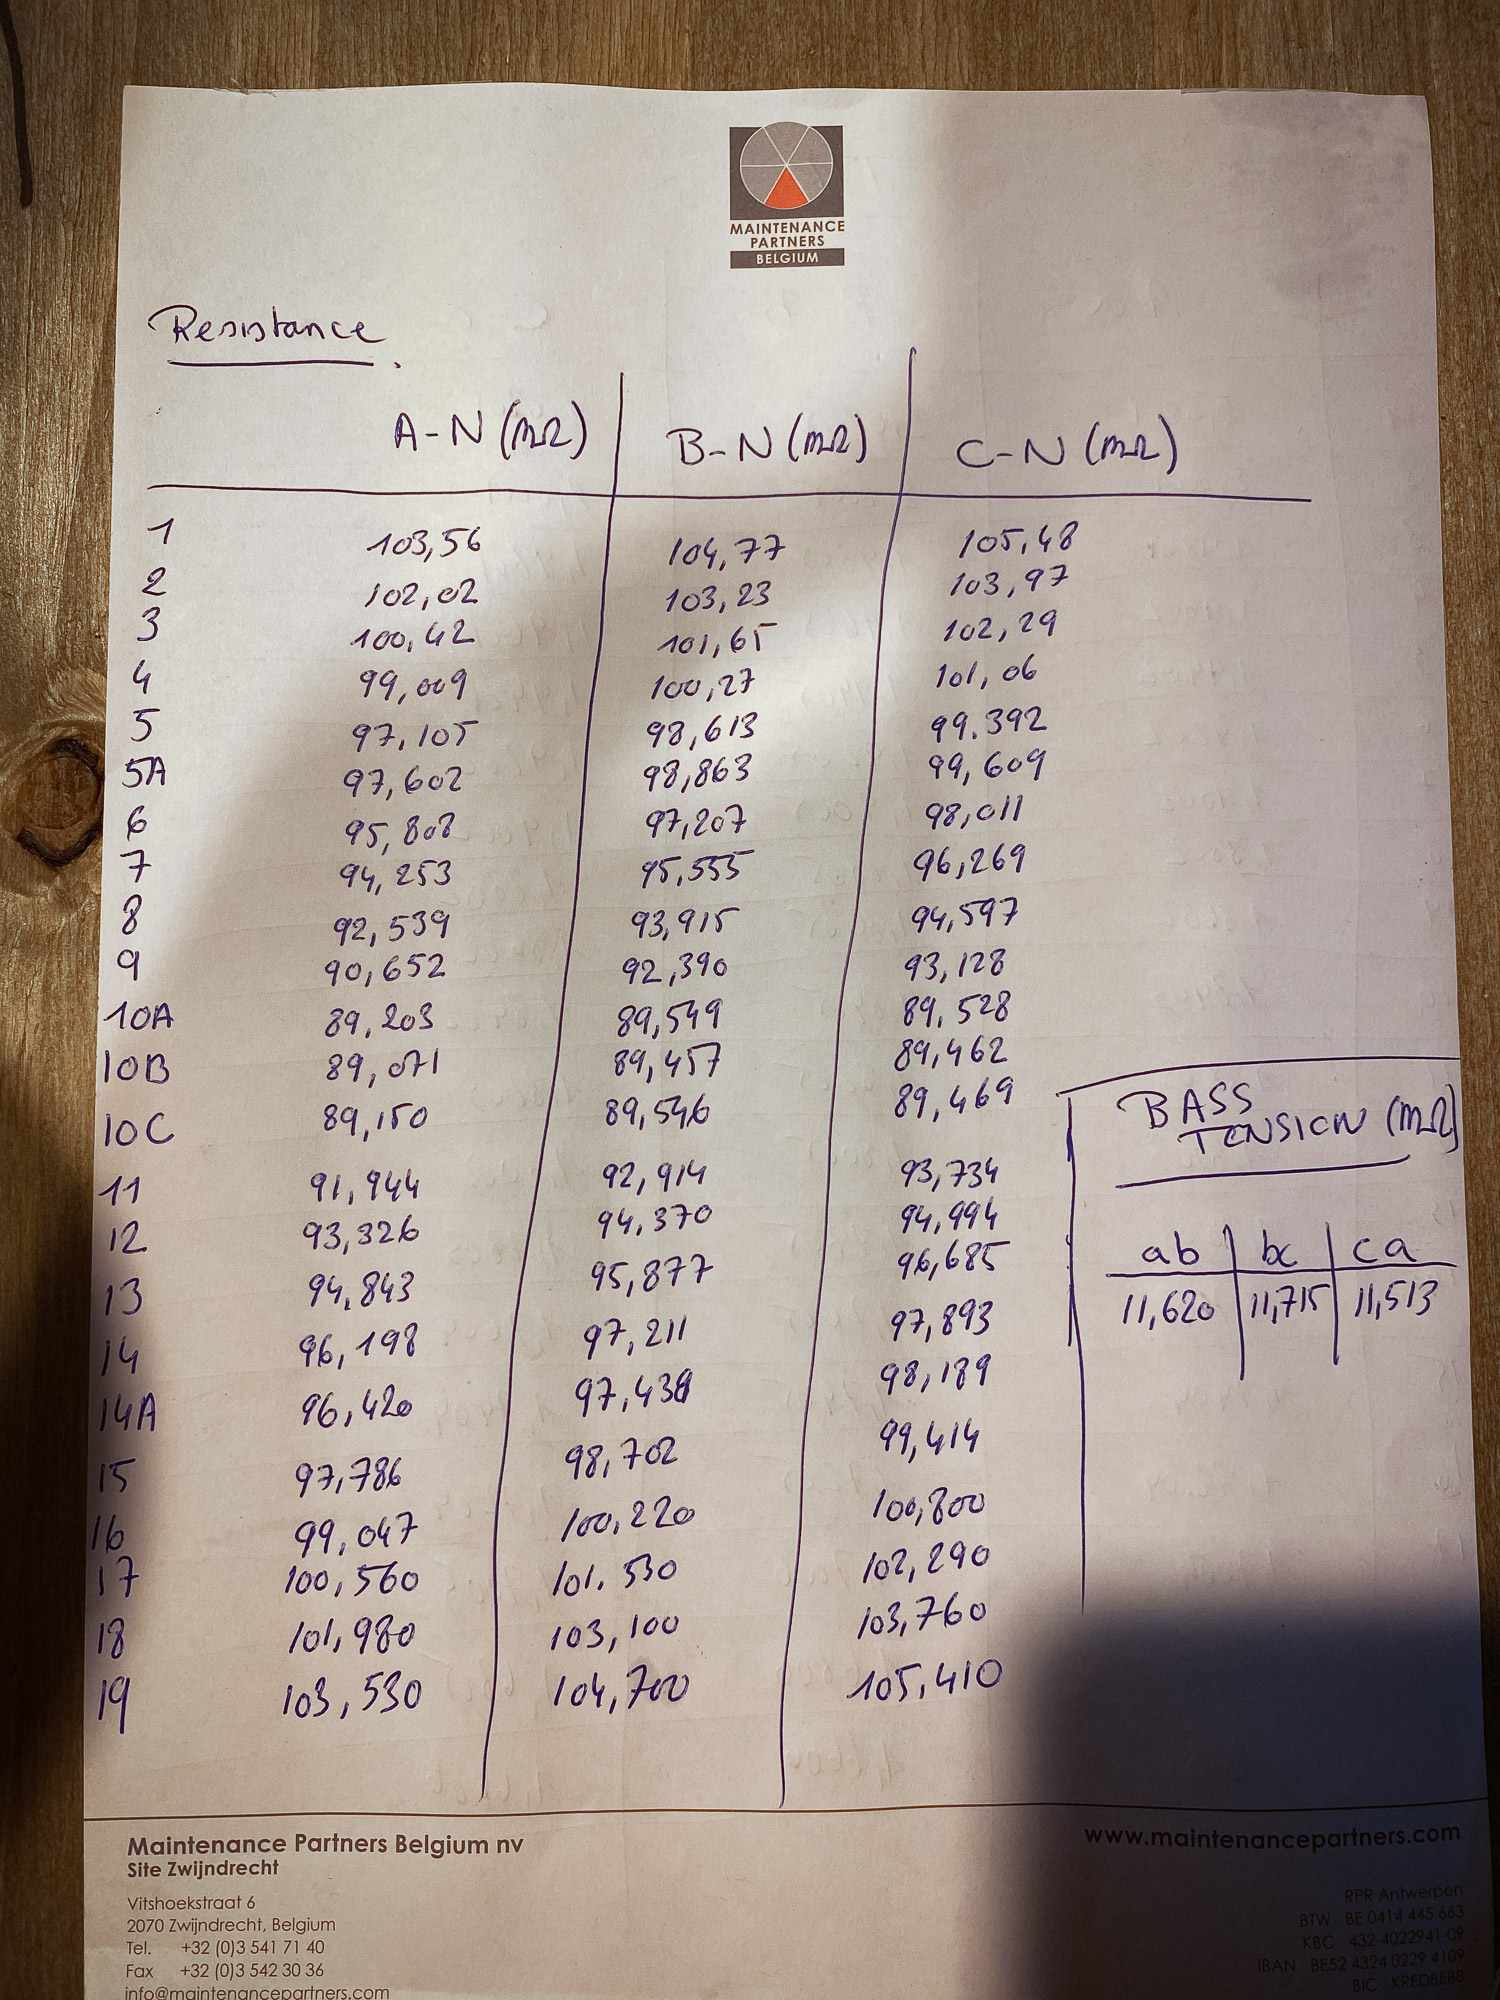 MAINTENANCE
PARTNERS
BELGIUM
Resistance.
A-N (mΩ) B-N (mΩ) C-N (mΩ)
1 103,56 104,77 105,48
2 102,02 103,23 103,97
3 100,42 101,65 102,29
4 99,009 100,27 101,06
5 97,105 98,613 99.392
5A 97,602 98,863 99,609
6 95,808 97,207 98,011
7 94,253 95,555 96,269
8 92,539 93,915 94,597
9 90,652 92,390 93,128
10A 89,203 89,549 89,528
10B 89,071 89,457 89,462
10C 89,150 89,546 89,469
11 91,944 92,914 93,734
12 93,326 94,370 94,994
13 94,843 95,877 96,685
14 96,198 97,211 97,893
14A 96,420 97,438 98,189
15 97,786 98,702 99,414
16 99,047 100,220 100,800
17 100,560 101,530 102,290
18 101,980 103,100 103,760
19 103,530 104,700 105,410
BASS
TENSION (mΩ)
ab bc ca
11,620 11,715 11,513
Maintenance Partners Belgium nv
Site Zwijndrecht
Vitshoekstraat 6
2070 Zwijndrecht, Belgium
Tel. +32 (0)3 541 71 40
Fax +32 (0)3 542 30 36
info@maintenancepartners.com
www.maintenancepartners.com
RPR Antwerpen
BTW BE 0414 445 663
KBC 432-4022941-09
IBAN BE52 4324 0229 4109
BIC KREDBEBB